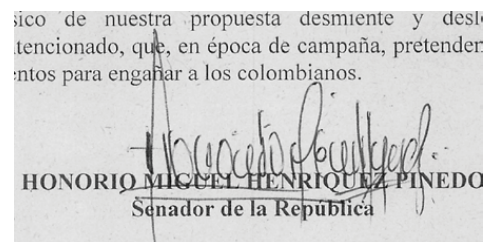 sico de nuestra propuesta desmiente y desl
tencionado, que, en época de campaña, pretender
entos para engañar a los colombianos.
HONORIO MIGUEL HENRIQUEZ PINEDO
Senador de la República